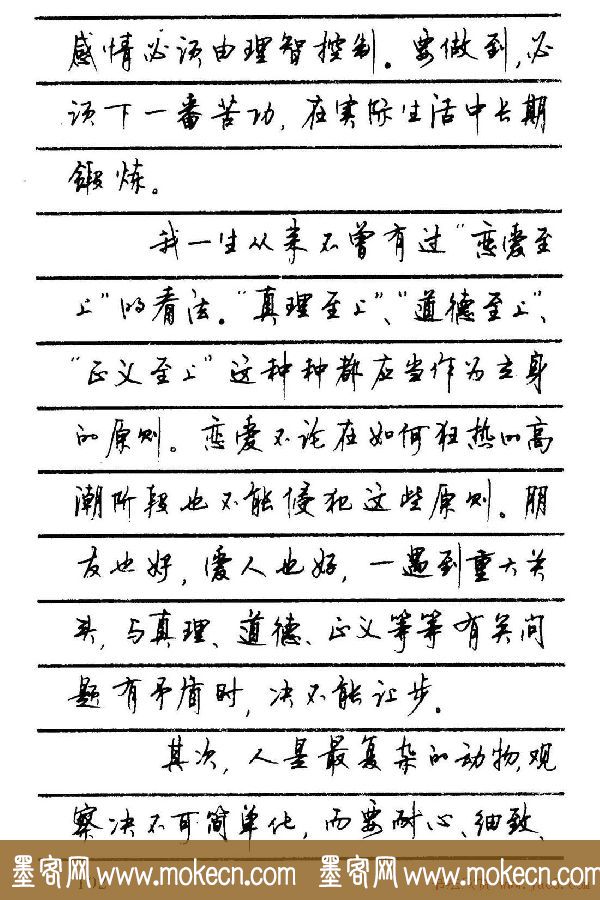 感情必须由理智控制。要做到,必
须下一番苦功,在实际生活中长期
锻炼。
我一生从来不曾有过“恋爱至
上”的看法。“真理至上”、“道德至上”、
“正义至上”这种种都应当作为立身
的原则。恋爱不论在如何狂热的高
潮阶段也不能侵犯这些原则。朋
友也好,爱人也好,一遇到重大关
头,与真理、道德、正义等等有关问
题有矛盾时,决不能让步。
其次,人是最复杂的动物,观
察决不可简单化,而要耐心、细致、
墨客网 www.mokecn.com 墨客网 www.mokecn.com